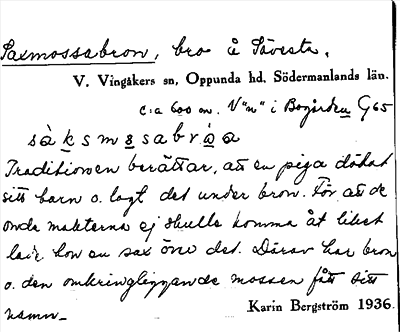 Saxmossabron, bro å Sävsta.
V. Vingåkers sn, Oppunda hd. Södermanlands län.
c:a 600 m. V "n" i Bogården G65
sàksmosabrɷ́a
Traditionen berättar, att en piga dödat
sitt barn o. lagt det under bron. För att de
onda makterna ej skulle komma åt liket
lade hon en sax över det. Därav har bron
o. den omkringliggande mossen fått sitt
namn.
Karin Bergström 1936.